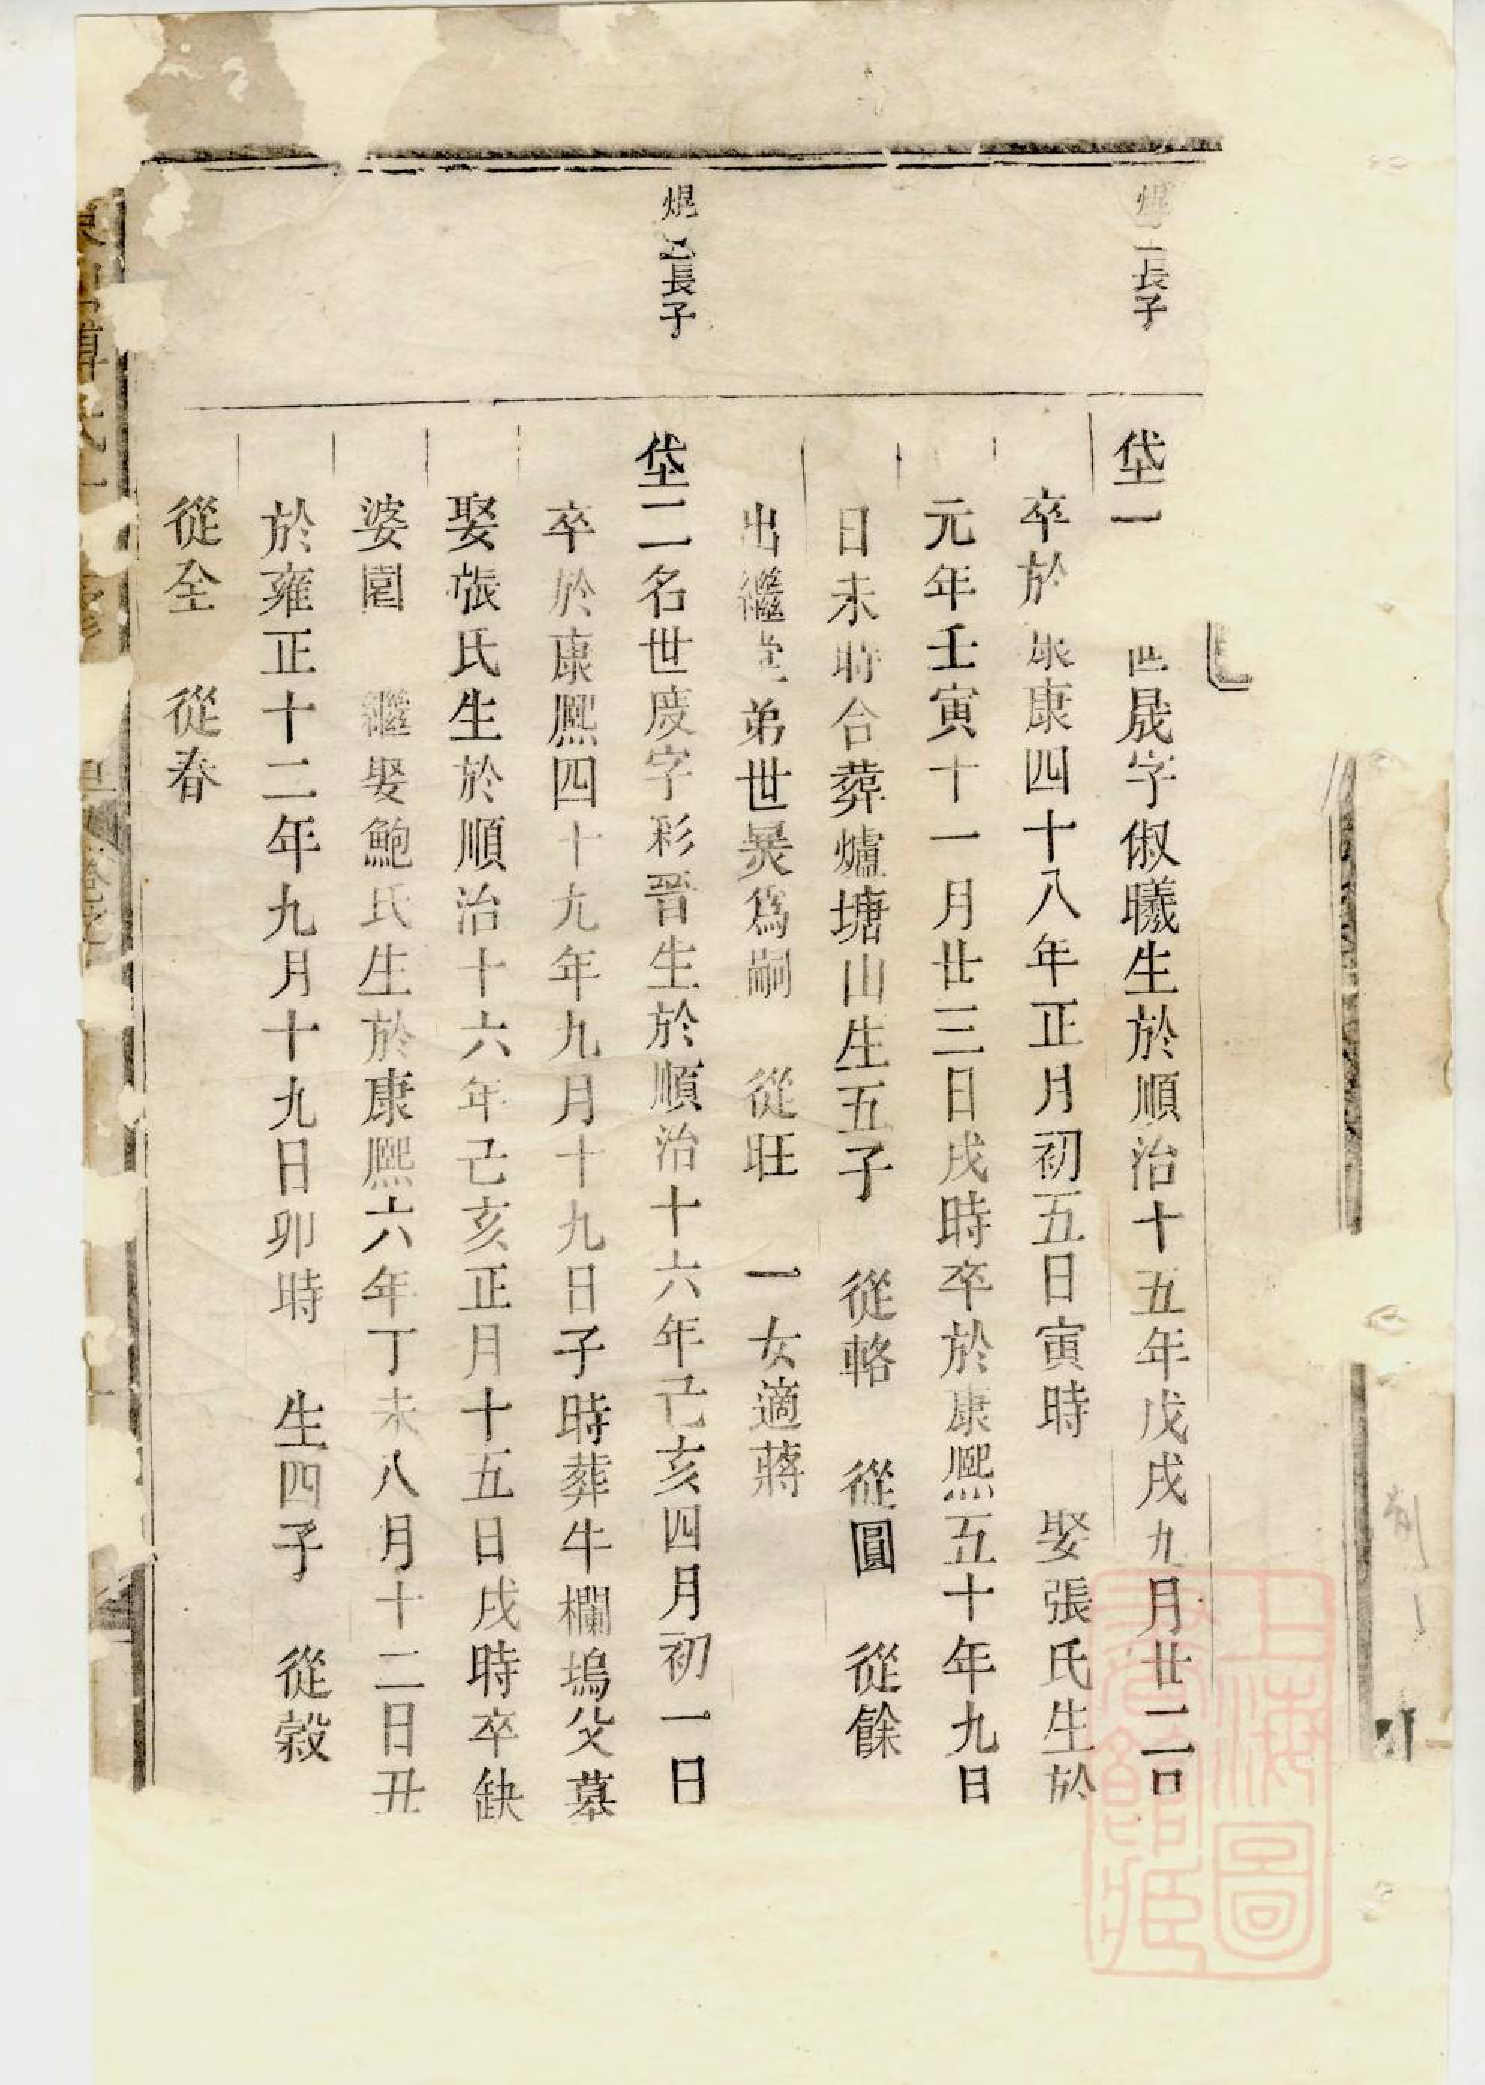 焜一長子
垡一 世晟字俶曦生於順治十五年戊戌九月廿二日
卒於康四十八年正月初五日寅時 娶張氏生於
元年壬寅十一月廿三日戌時卒於康熙五十年九日
日未時合葬爐塘山生五子 從輅 從圓 從餘
出繼堂弟世炅爲嗣 從旺 一女適蔣
焜長子
垡二名世慶字彩晉生於順治十六年己亥四月初一日
卒於康熙四十九年九月十九日子時葬牛欄塢父墓
娶張氏生於順治十六年己亥正月十五日戌時卒缺
婆園 繼娶鮑氏生於康熙六年丁未八月十二日丑
於雍正十二年九月十九日卯時 生四子 從穀
從全 從春
上海圖書館藏